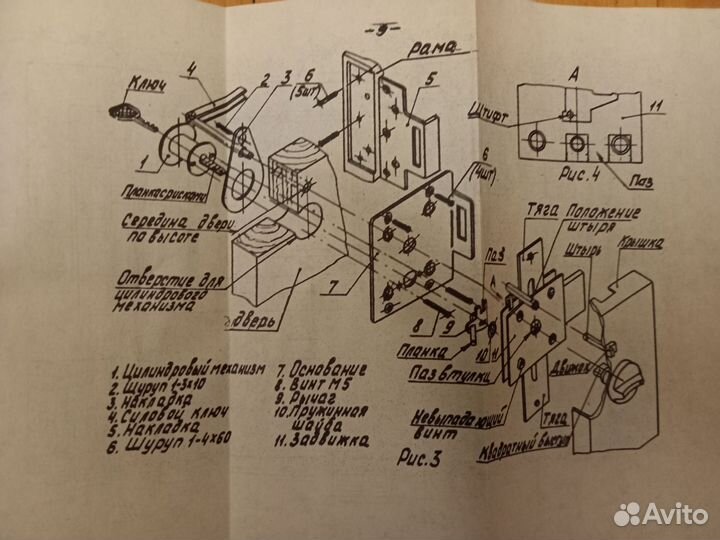 - 9 -
Ключ
4
2
3
6
(5шт)
рама
5
А
Штифт
11
Рис.4
Паз
1
Планка с рисками
Середина двери
по высоте
Отверстие для
цилиндрового
механизма
дверь
6
(4шт)
7
8
9
Паз
А
Планка
10
11
Паз втулки
Тяга
Положение
штыря
Штырь
Крышка
Движок
Невыпадающий
винт
Тяга
Квадратный
Рис.3
1. Цилиндровый механизм
2. Шуруп 1-3х10
3. Накладка
4. Силовой ключ
5. Накладка
6. Шуруп 1-4х60
7. Основание
8. Винт М5
9. Рычаг
10. Пружинная
шайба
11. Задвижка
Avito